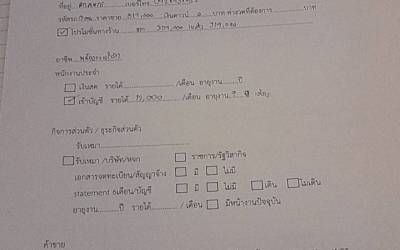 ที่อยู่ ... เบอร์โทร
รหัสรถ ... ราคาขาย 319,000 เงินดาวน์ 0 บาท ค่างวดที่ต้องการ ... บาท
☑ โปรโมชั่นทางร้าน ลด 319,000
อาชีพ พนักงาน
พนักงานประจำ
☐ เงินสด รายได้ ... /เดือน อายุงาน ... ปี
☑ เข้าบัญชี รายได้ 15,000 /เดือน อายุงาน ? ปี
กิจการส่วนตัว / ธุรกิจส่วนตัว
รับเหมา
☐ รับเหมา /บริษัท/หจก ☐ ราชการ/รัฐวิสาหกิจ
เอกสารจดทะเบียน/สัญญาจ้าง ☐ มี ☐ ไม่มี
statement 6เดือน/บัญชี ☐ มี ☐ ไม่มี ☐ เดิน ☐ ไม่เดิน
อายุงาน ... ปี รายได้ ... / เดือน ☐ มีหน้างานปัจจุบัน
ค้าขาย